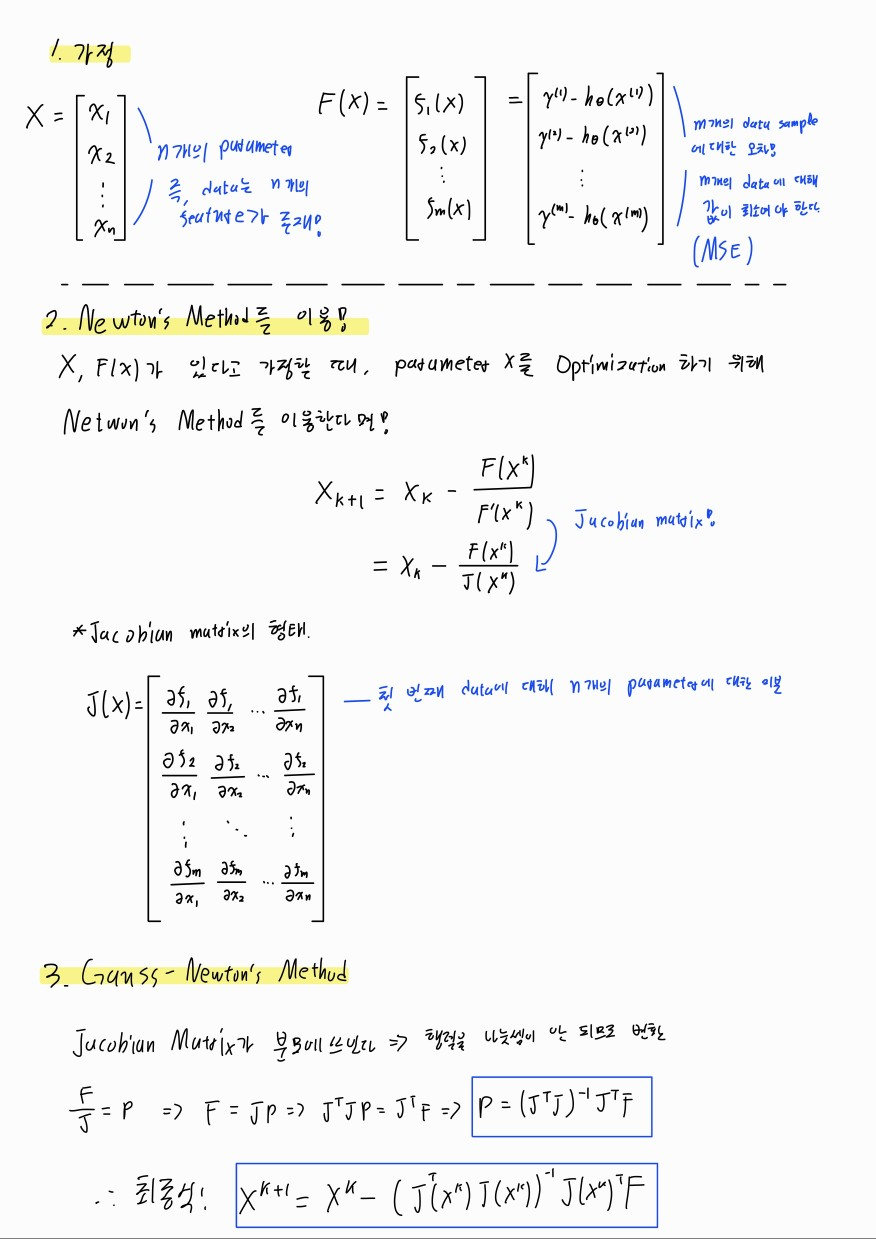 1. 가정
X = [x₁ x₂ ⋮ xₙ]
n개의 parameter
즉, data는 n개의
feature가 존재!
F(X) = [f₁(x) f₂(x) ⋮ fₘ(x)] = [y⁽¹⁾ - hθ(x⁽¹⁾) y⁽²⁾ - hθ(x⁽²⁾) ⋮ y⁽ᵐ⁾ - hθ(x⁽ᵐ⁾)]
m개의 data sample
에 대한 오차!
m개의 data에 대해
값이 최소여야 한다
(MSE)
2. Newton's Method를 이용!
X, F(x)가 있다고 가정할 때, parameter X를 Optimization 하기 위해
Netwon's Method를 이용한다면!
X_{k+1} = X_k - F(X^k) / F'(X^k)
Jacobian matrix!
= X_k - F(X^k) / J(X^k)
*Jacobian matrix의 형태.
J(X) = [∂f₁/∂x₁ ∂f₁/∂x₂ ⋯ ∂f₁/∂xₙ
∂f₂/∂x₁ ∂f₂/∂x₂ ⋯ ∂f₂/∂xₙ
⋮ ⋱ ⋮
∂fₘ/∂x₁ ∂fₘ/∂x₂ ⋯ ∂fₘ/∂xₙ]
첫 번째 data에 대해 n개의 parameter에 대한 미분
3. Gauss-Newton's Method
Jacobian Matrix가 분모에 쓰인다 => 행렬은 나눗셈이 안 되므로 변환
F/J = P => F = JP => JᵀJP = JᵀF => P = (JᵀJ)⁻¹JᵀF
∴ 최종식! X^{k+1} = X^k - (Jᵀ(X^k)J(X^k))⁻¹J(X^k)ᵀF